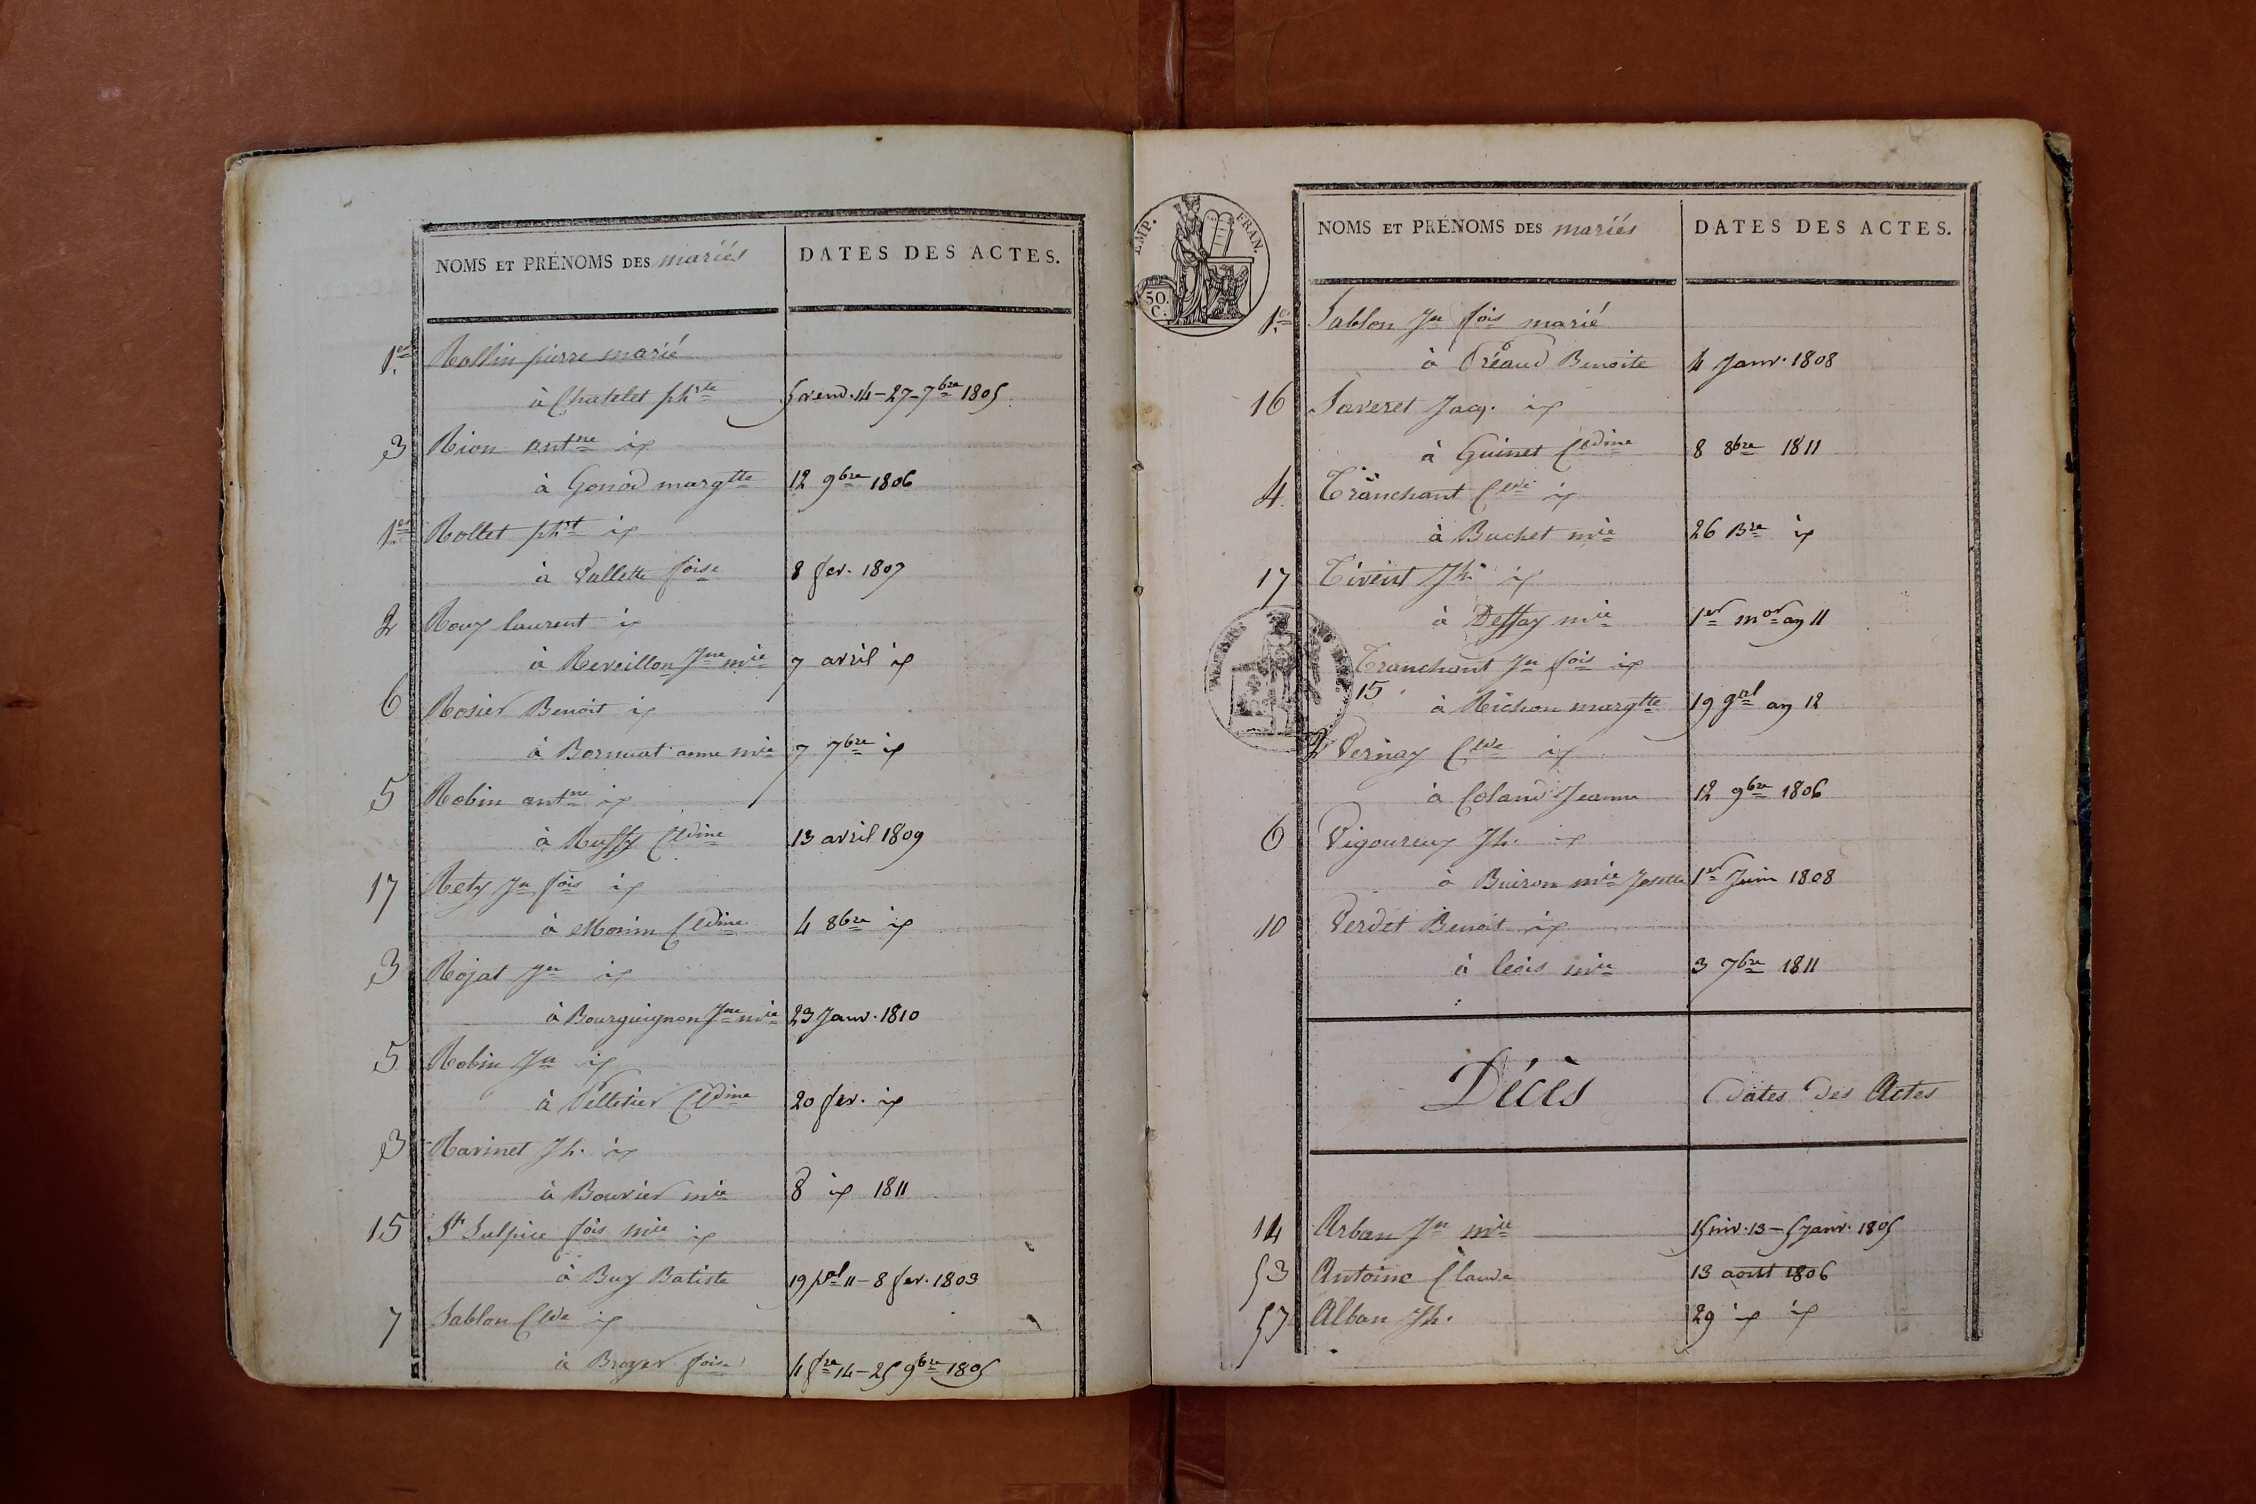 NOMS ET PRÉNOMS DES mariés DATES DES ACTES.
1er Rollin pierre marié
à Chatelet phte 5 vend. 14 - 27 - 7bre 1805
3 Rion antne ip
à Gonod margtte 12 9bre 1806
1er Rollet phrt ip
à Vallette foise 8 fev. 1807
2 Roux laurent ip
à Reveillon Jne mie 7 avril ip
6 Rosier Benoit ip
à Bornuat anne mie 7 7bre ip
5 Robin antne ip
à Ruffy Cldine 13 avril 1809
17 Rety Jn fois ip
à Morin Cldine 4 8bre ip
3 Rojat Jn ip
à Bourguignon Jne mie 23 Janv. 1810
5 Robin Jn ip
à Pelletier Cldine 20 fev. ip
3 Ravinet Jh. ip
à Bouvier mie 8 ip 1811
15 St Sulpice fois mie ip
à Buy Batiste 19 pal 11 - 8 fev. 1803
7 Sablon Clde ip
à Broyer foise 4 fre 14 - 25 9bre 1805
EMP. FRAN.
50. C.
NOMS ET PRÉNOMS DES mariés DATES DES ACTES.
1er Sablon Jn fois marié
à Préaud Benoite 4 Janv. 1808
16 Saveret Jacq. ip
à Guinet Cldine 8 8bre 1811
4 Tranchant Clde ip
à Buchet mie 26 Bre ip
17 Tivent Jh. ip
à Dessay mie 1er mor an 11
Tranchant Jn fois ip
15 à Richon margtte 19 gal an 12
2 Vernay Clde ip
à Coland Jeanne 12 9bre 1806
6 Vigoureux Jh. ip
à Buiron mie Josette 1er Juin 1808
10 Verdet Benoit ip
à leois mie 3 7bre 1811
Décès Dates Des Actes
14 Arban Jn mie 15 niv. 13 - 5 Janv. 1805
53 Antoine Claude 13 aout 1806
57 Alban Jh. 29 ip ip